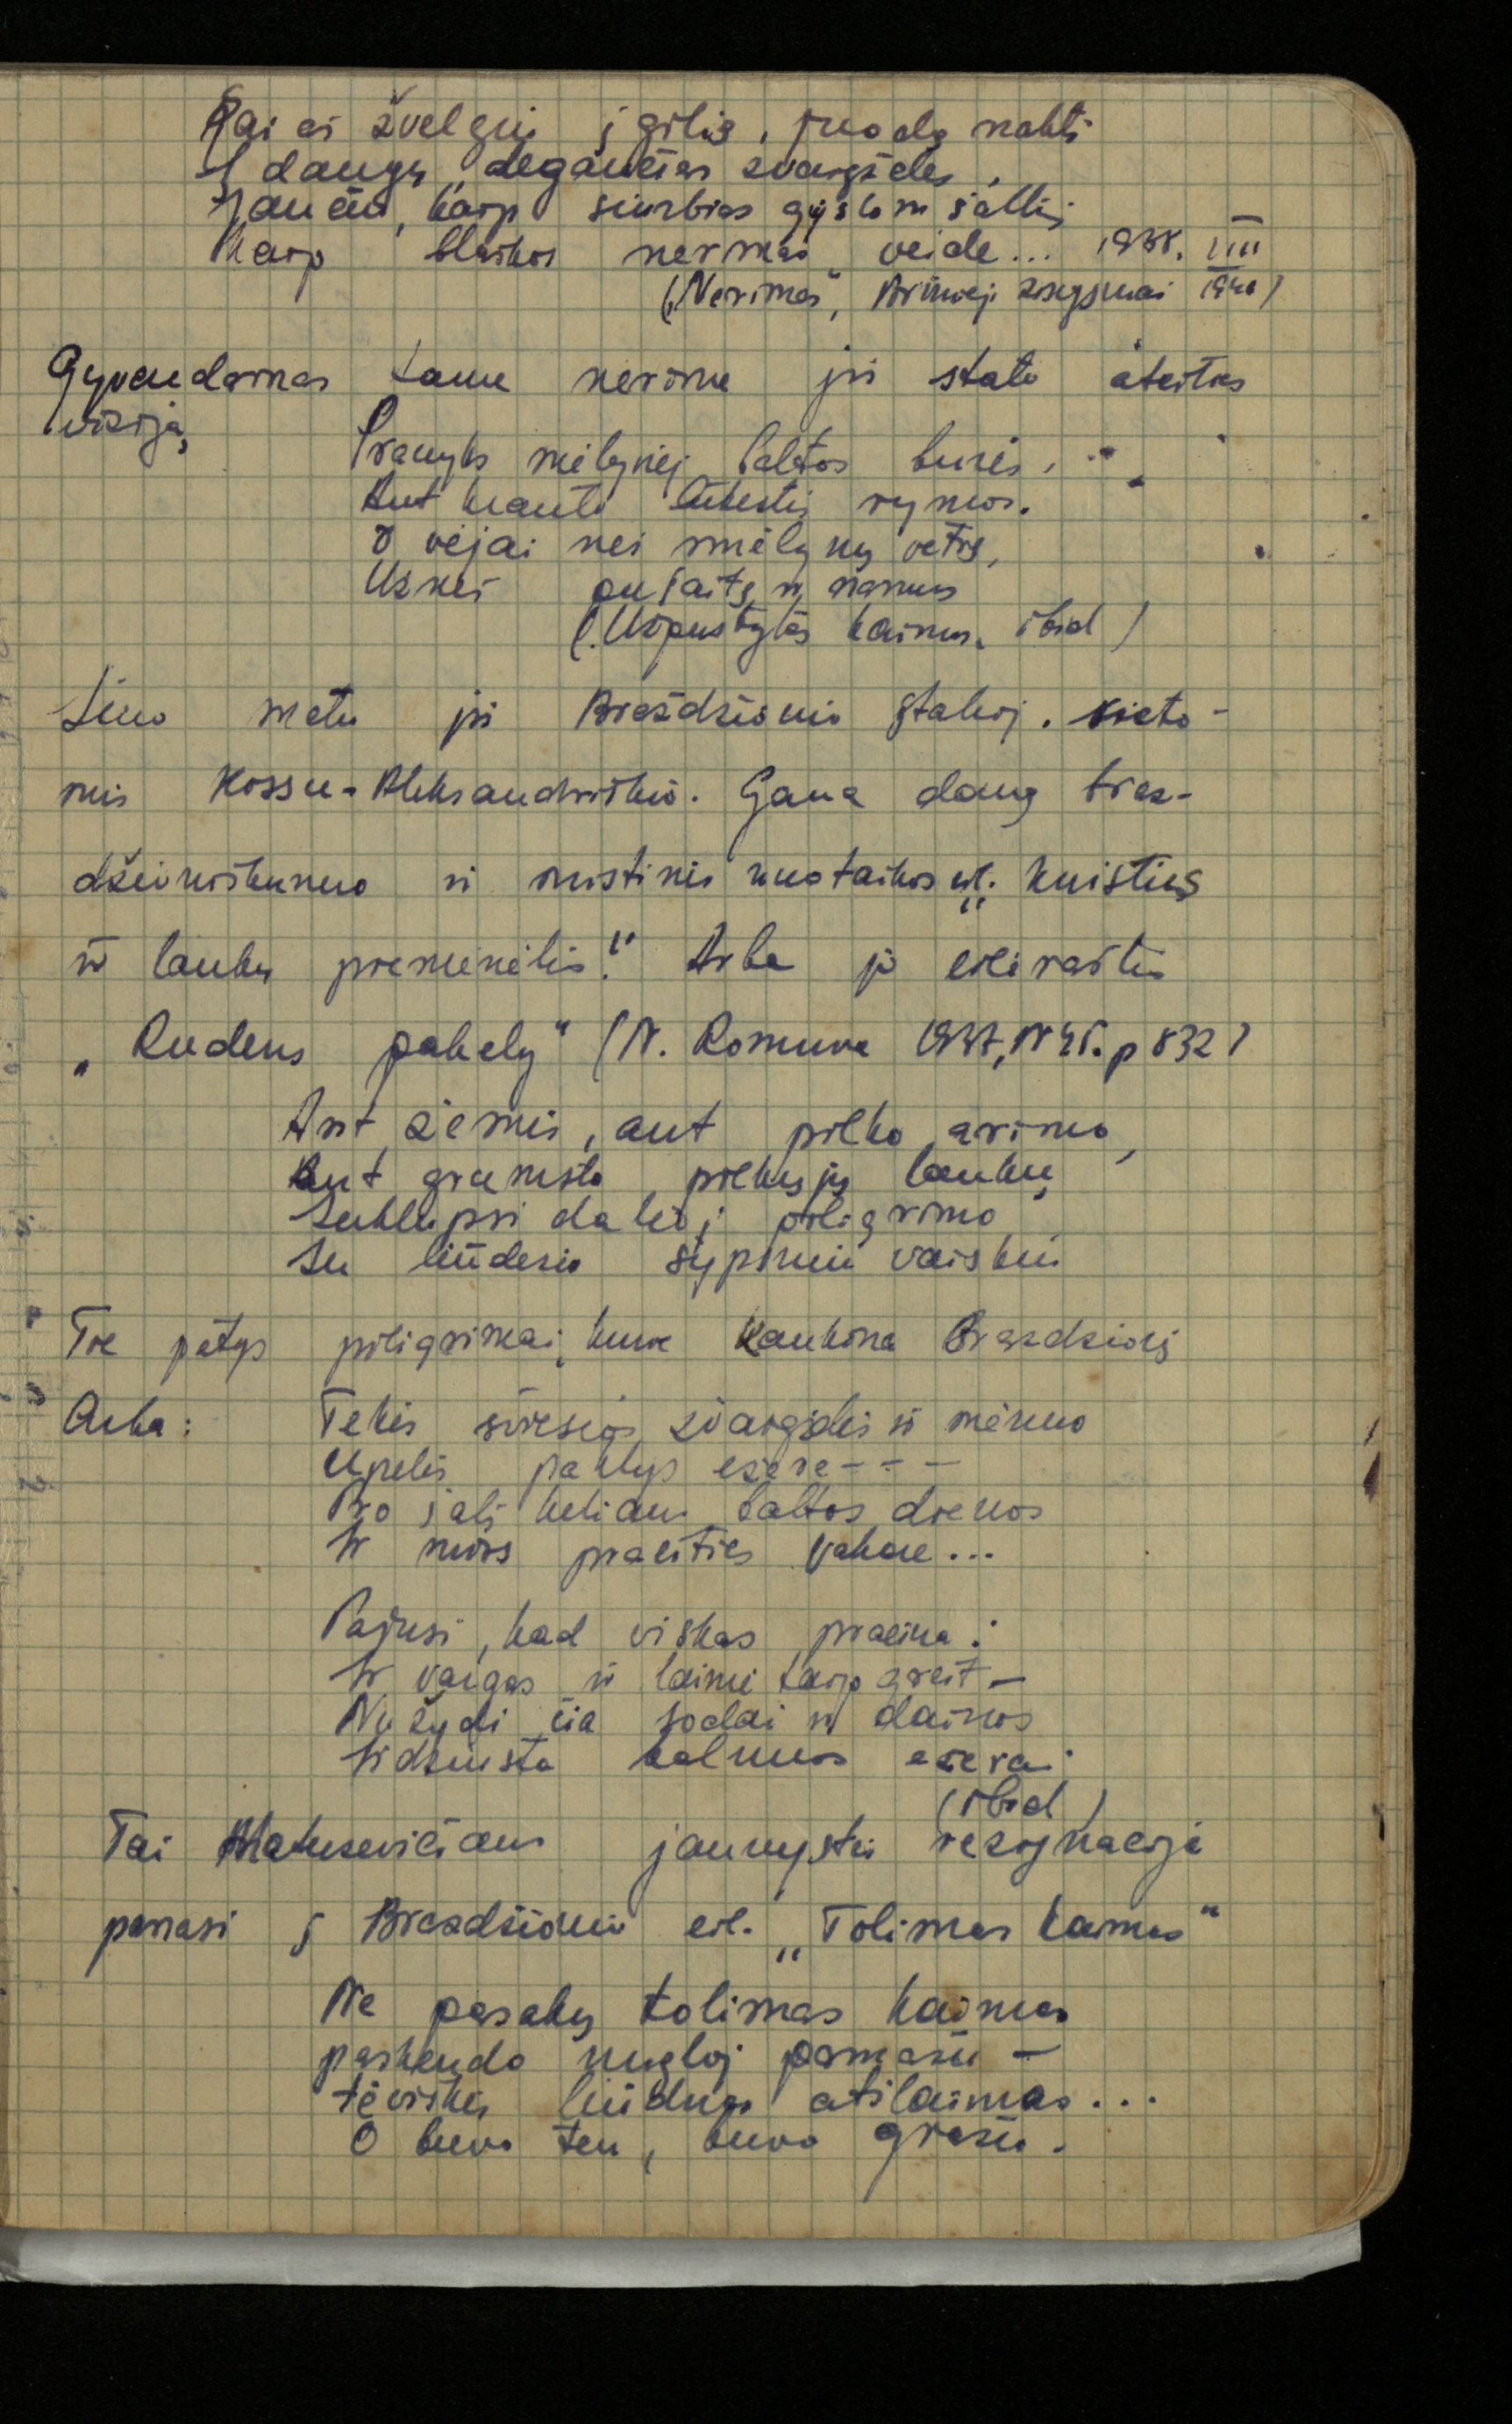 Kai aš žvelgiu į gilią, juodą naktį
Į dangų, degančias žvaigždes,
Jaučiu, kaip siurbias gyslom šaltis
Kaip blaškos nerimas veide... 1938. VIII
(„Nerimas“, Brūkšniai 1940)
Gyvendamas tame nerime jis stato ateities
viziją,
Pranyks mėlynėj baltos burės,
Ant kranto lūkestis rymos.
O vėjai nei mėlynų vėtrų,
Užneš pusaitę ir namus
( kaimas. ibid)
Šiuo metu jis Brazdžionio įtakoj. vieto-
mis Kossu-Aleksandriškio. Gana daug braz-
džioniškumo ir mistinės nuotaikos eil. „Knistus
ir laukų piemenėlis“. Arba jo eilėraštis
„Rudens pakely“ (N. Romuva 1937, Nr 45. p 832)
Ant žemės, ant pilko arimo,
Ant grumsto pilkųjų laukų
Suklupsi daloj piligrimo
Su liūdesio šypsniu vaiskiu
Tie patys piligrimai, kurie kankina Brazdžionį
Arba: Tekės žvaigždės ir mėnuo
Upelis paklys ežere - - -
Pro šalį keliaus baltos dienos
Ir mūs praeities vakare...
Pajusi, kad viskas praeina:
Ir vargas ir laimė taip greit –
Nužydi čia sodai ir dainos
Išdžiūsta kalnuos ežerai
(ibid)
Tai Matusevičiaus jaunystės rezignacija
panaši į Brazdžionio eil. „Tolimas kaimas“
Ne pasakų tolimas kaimas
paskendo migloj pamažu –
tėviškės liūdnas atšlaimas...
O buvo ten, buvo gražu.